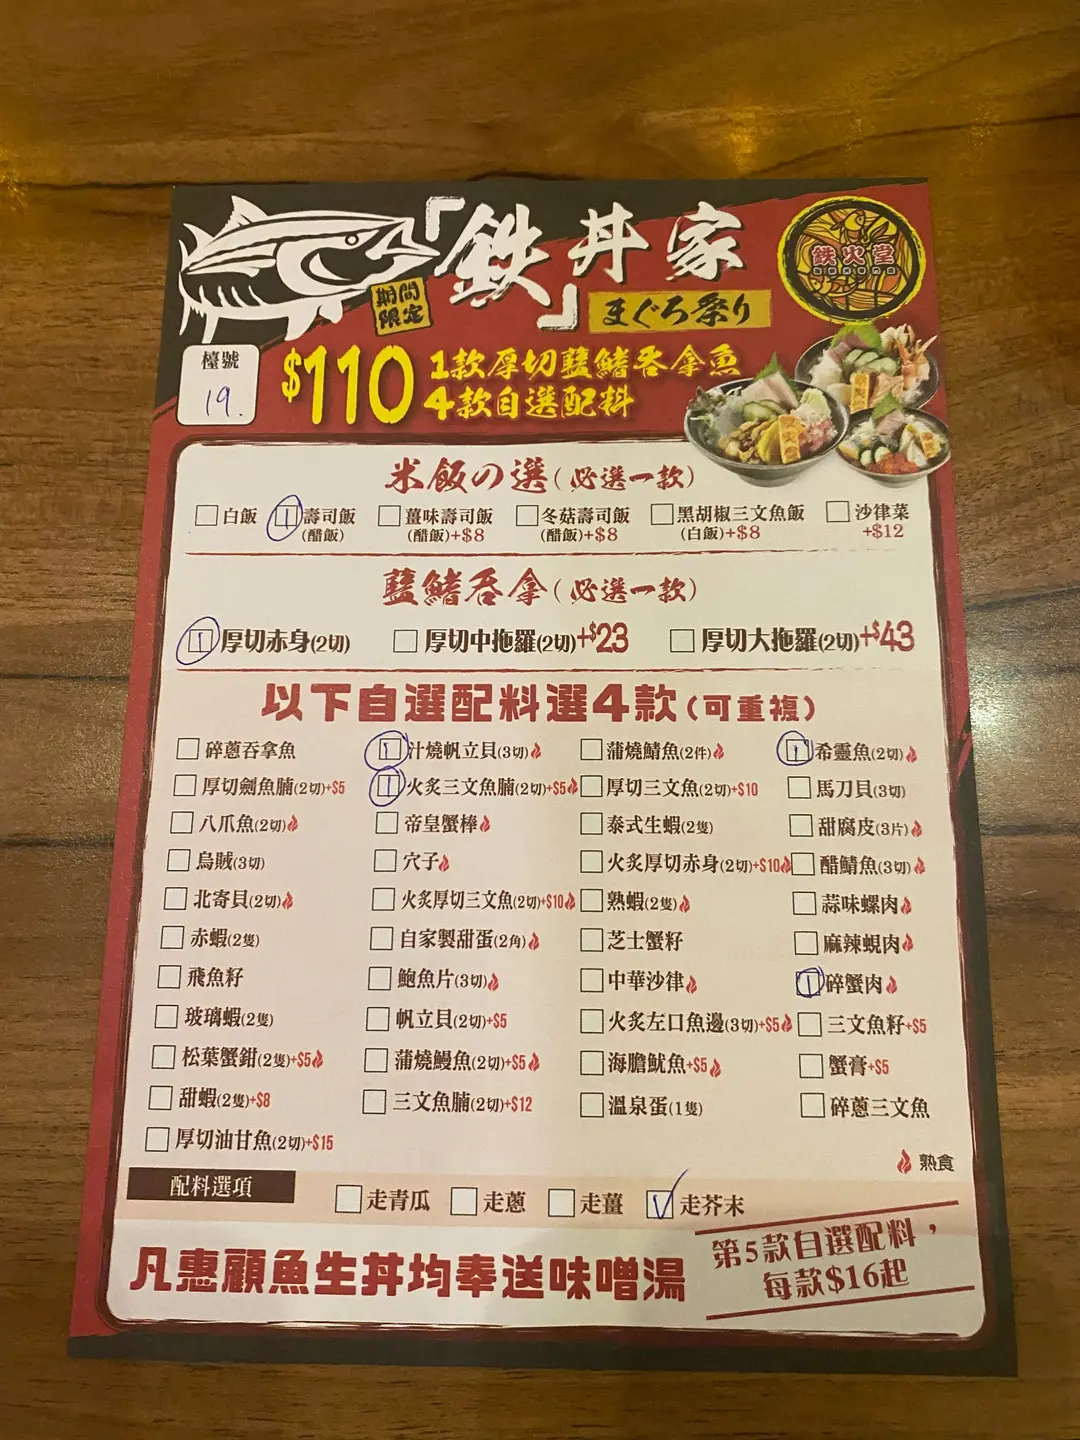 「鉄丼家」
期間
限定
まぐろ祭り
鉄火堂
檯號
19.
$110
1款厚切藍鰭吞拿魚
4款自選配料
米飯の選(必選一款)
白飯 1 壽司飯 薑味壽司飯 冬菇壽司飯 黑胡椒三文魚飯 沙律菜
(醋飯) (醋飯)+$8 (醋飯)+$8 (白飯)+$8 +$12
藍鰭吞拿(必選一款)
1 厚切赤身(2切) 厚切中拖羅(2切)+$23 厚切大拖羅(2切)+$43
以下自選配料選4款(可重複)
碎蔥吞拿魚 1 汁燒帆立貝(3切) 蒲燒鯖魚(2件) 1 希靈魚(2切)
厚切劍魚腩(2切)+$5 1 火炙三文魚腩(2切)+$5 厚切三文魚(2切)+$10 馬刀貝(3切)
八爪魚(2切) 帝皇蟹棒 泰式生蝦(2隻) 甜腐皮(3片)
烏賊(3切) 穴子 火炙厚切赤身(2切)+$10 醋鯖魚(3切)
北寄貝(2切) 火炙厚切三文魚(2切)+$10 熟蝦(2隻) 蒜味螺肉
赤蝦(2隻) 自家製甜蛋(2角) 芝士蟹籽 麻辣蜆肉
飛魚籽 鮑魚片(3切) 中華沙律 1 碎蟹肉
玻璃蝦(2隻) 帆立貝(2切)+$5 火炙左口魚邊(3切)+$5 三文魚籽+$5
松葉蟹鉗(2隻)+$5 蒲燒鰻魚(2切)+$5 海膽魷魚+$5 蟹膏+$5
甜蝦(2隻)+$8 三文魚腩(2切)+$12 溫泉蛋(1隻) 碎蔥三文魚
厚切油甘魚(2切)+$15
熟食
配料選項 走青瓜 走蔥 走薑 ✓ 走芥末
凡惠顧魚生丼均奉送味噌湯
第5款自選配料，
每款$16起